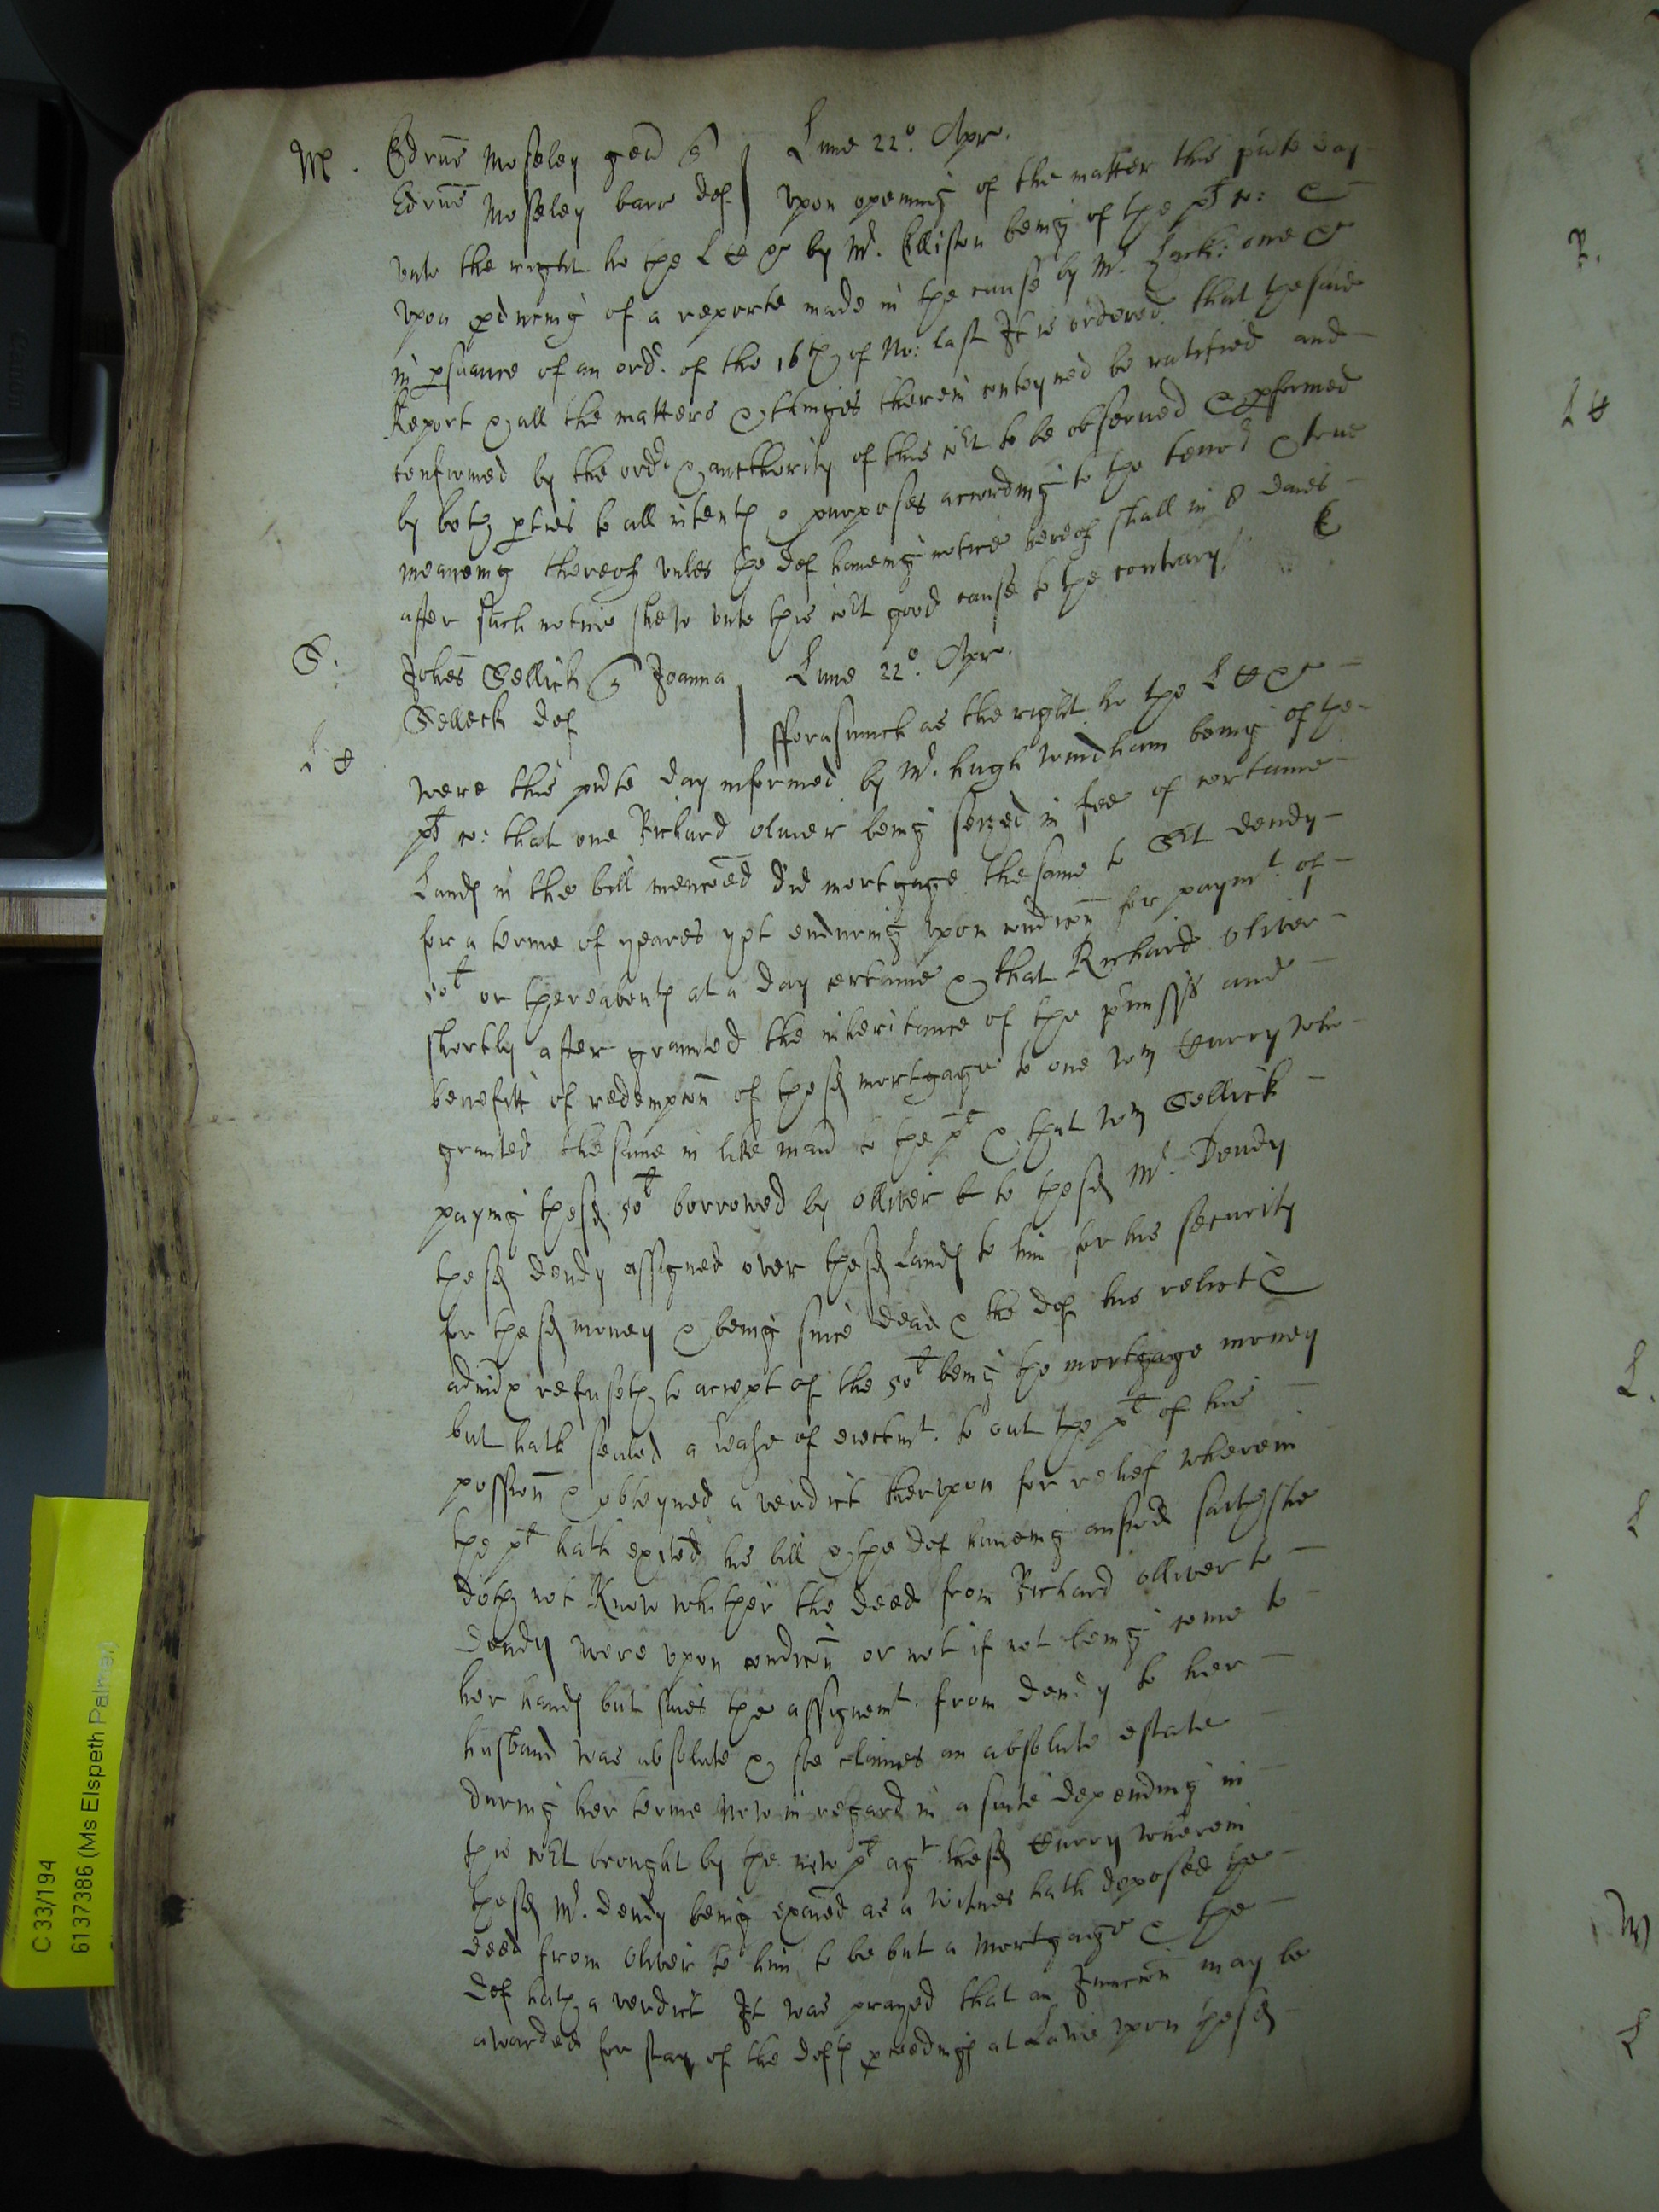 M. Edrus Moseley gen q Lune 22o. Apr.
Edrus Moseley barr def Vpon opening of the matter this pnte day
vnto the right ho the L C by Mr. Ellison being of the plt co: &
vpon pducing of a reporte made in the cause by Mr. one &
in psuance of an ordr. of the 16th of No: last It is ordered that the said
Report & all the matters & thinges therein conteyned be ratefied and
confirmed by the ordr & aucthority of this cort to be observed & pformed
by both pties to all intents & purposes according to the tenor & true
meaneing thereof vnles the def haveing notice hereof shall in 8 daies
after such notice shew vnto this cort good cause to the contrary.
S: Johes Sellick q Joanna Lune 22o. Apr.
Selleck def fforasmuch as the right ho the L C
were this pnte day informed by Mr. Hugh Windham being of the
plt co: that one Richard Oliver being seized in fee of certaine
Lands in the bill menconed did mortgage the same to Dendy
for a terme of yeares yet enduring vpon condicon for paymt. of
50l or thereabouts at a day certaine & that Richard Oliver
shortly after graunted the inheritance of the pmisses and
benefitt of redempcon of the sd mortgage to one Wm who
granted the same in like mann to the plt & that Wm Sellick
paying the sd. 50l borrowed by Olliver to the sd Mr. Dendy
the sd Dendy assigned over the sd Lands to him for his security
for the sd money & being since dead & the def his relict &
admx refuseth to accept of the 50l being the mortgage money
but hath sealed a lease of eiectmt. to out the plt of his
possion & obteyned a verdict therevpon for relief wherein
the plt hath exited his bill & the def haveing answd saith she
doth not know whither the deed from Richard Olliver to
Dendy were vpon condicon or not it not being come to
her hands but saies the assignemt. from Dendy to her
husband was absolute & she claimes an absolute estate
during her terme Now in regard in a suite depending in
this cort brought by the now plt agt the sd wherein
the sd Mr. Dendy being examed as a witnes hath deposed the
deed from Oliver to him to be but a mortgage & the
def hath a verdict It was prayed that an Iniuncion may be
awarded for stay of the defts pceedings at Lawe vpon the sd
C 33/194
6137386 (Ms Elspeth Palmer)